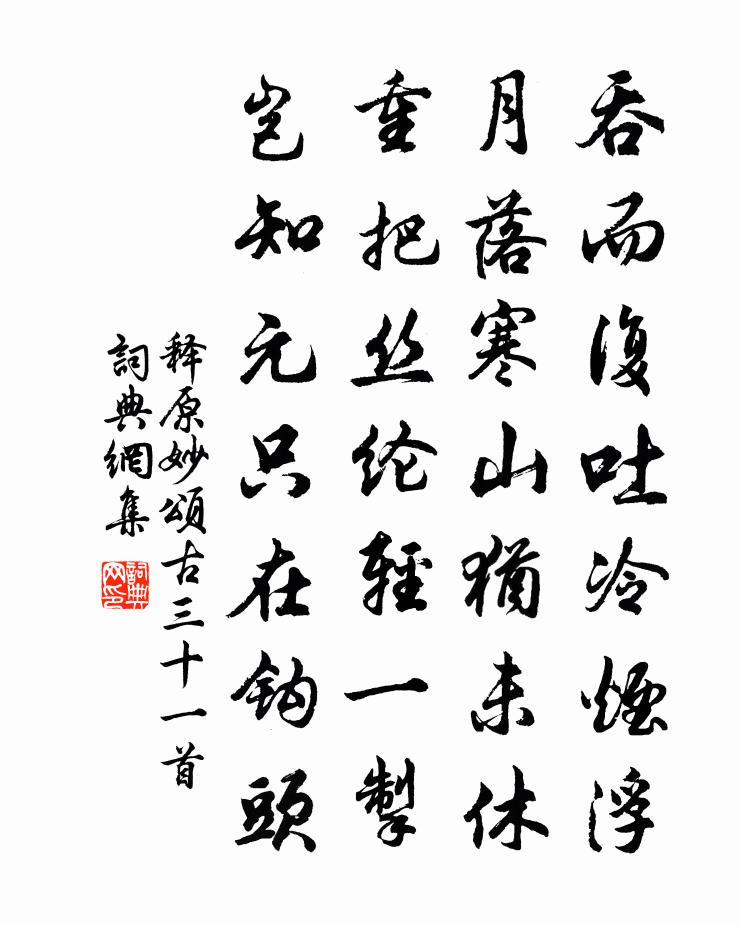 吞而復吐冷煙浮
月落寒山猶未休
重把丝纶輕一掣
岂知元只在鈎頭
释原妙頌古三十一首
詞典網集
詞典
网印